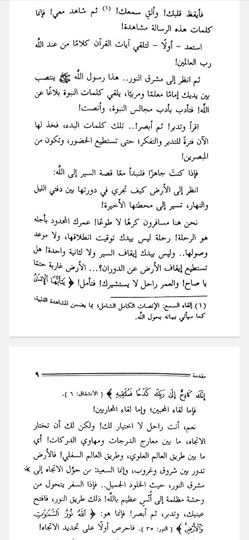 فأيقظ قلبك! وألق سمعك! (١) ثم شاهد معي! فإنما
كلمات هذه الرسالة مشاهدة!
استعد – أولًا – لتلقي آيات القرآن كلامًا من عند الله
رب العالمين!
ثم انظر إلى مشرق النور.. هذا رسول الله ﷺ ينتصب
بين يديك إمامًا معلمًا ومربيًا، يلقي كلمات النبوة بلاغًا عن
الله! فتأدب بأدب مجالس النبوة، وأنصت!
اقرأ وتدبر! ثم أبصر!.. تلك كلمات البدء، فخذ لها
الآن فترةً للتدبر والتفكر؛ حتى تستطيع الحضور، وتكون من
المبصرين!
فإذا كنت جاهزًا فلنبدأ معًا قصة السير إلى الله:
انظر إلى الأرض كيف تجري في دورتها بين دفتي الليل
والنهار، تسير إلى محطتها الأخيرة!
نحن هنا مسافرون كرهًا لا طوعًا! عمرك المحدود بأجله
هو الرحلة! رحلة ليس بيدك توقيت انطلاقها، ولا موعد
وصولها.. وليس بيدك إيقاف السير ولا لثانية واحدة! هل
تستطيع إيقاف الأرض عن الدوران؟... الأرض غاربة حتمًا
يا صاح! والعمر راحل لا يستشيرك! فتأمل! ﴿ يَٰٓأَيُّهَا ٱلۡإِنسَٰنُ
(١) إلقاء السمع: الإنصات الكامل الشامل؛ بما يضمن المشاهدة القلبية؛
كما سيأتي بيانه بحول الله.
مقدمة ٩
إِنَّكَ كَادِحٌ إِلَىٰ رَبِّكَ كَدۡحٗا فَمُلَٰقِيهِ ﴾ [ الانشقاق: ٦ ].
فإما لقاء المحبين؛ وإما لقاء المحاربين!
نعم، أنت راحل لا اختيار لك! ولكن لك أن تختار
الاتجاه، ما بين معارج الدرجات ومهاوي الدركات! أي
ما بين طريق العالم العلوي، وطريق العالم السفلي! فالأرض
تدور بين شروق وغروب، وإنما السعيد: من حول الاتجاه إلى
مشرق النور، حيث الخلود الجميل.. فإذا السفر يتحول من
وحشة مظلمة إلى أنس عظيم بالله! ذلك طريق النور، فافتح
عينيك، وتدبر، ثم أبصر! فإنما هو: ﴿ ٱللَّهُ نُورُ ٱلسَّمَٰوَٰتِ
وَٱلۡأَرۡضِ ﴾ [ النور: ٣٥ ]. فاحرص أولًا على تحديد الاتجاه!